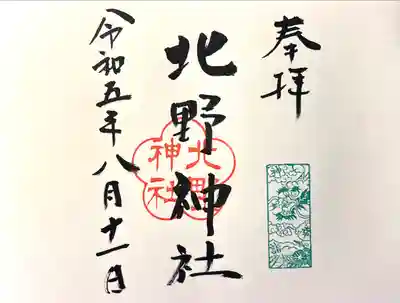 奉拝
北野神社
北野
神社
令和五年八月十一日